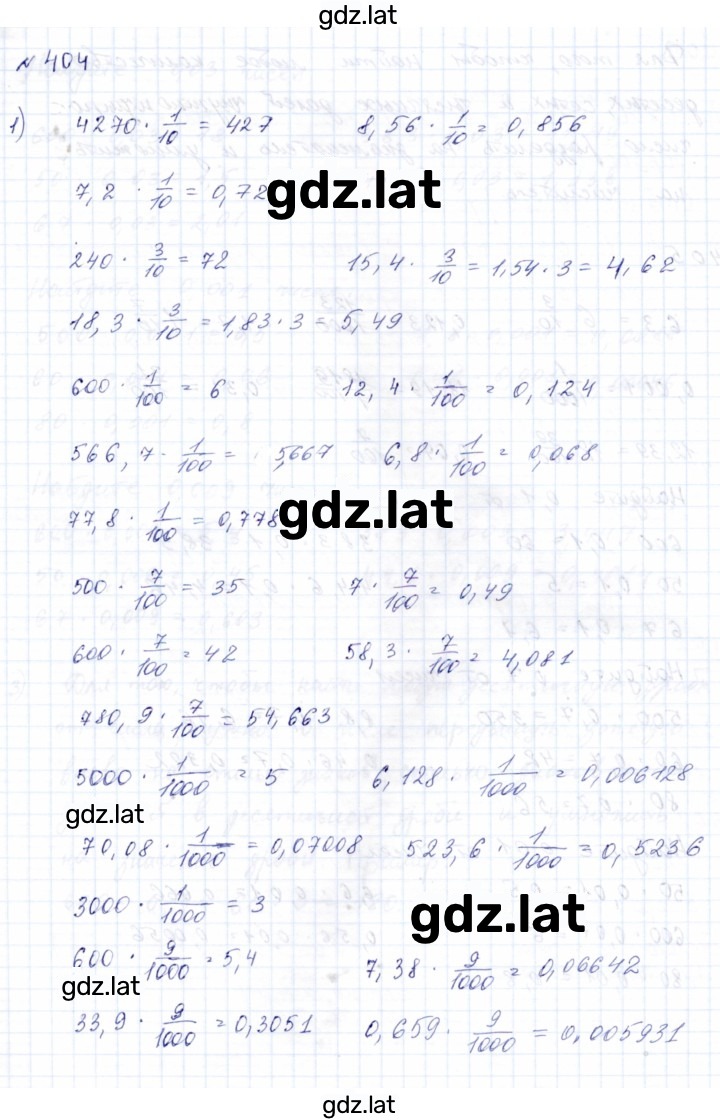 gdz.lat
№ 404
1) 4270 · 1/10 = 427 8,56 · 1/10 = 0,856
7,2 · 1/10 = 0,72
gdz.lat
240 · 3/10 = 72 15,4 · 3/10 = 1,54 · 3 = 4,62
18,3 · 3/10 = 1,83 · 3 = 5,49
600 · 1/100 = 6 12,4 · 1/100 = 0,124
566,7 · 1/100 = 5,667 6,8 · 1/100 = 0,068
77,8 · 1/100 = 0,778
gdz.lat
500 · 7/100 = 35 7 · 7/100 = 0,49
600 · 7/100 = 42 58,3 · 7/100 = 4,081
780,9 · 7/100 = 54,663
5000 · 1/1000 = 5 6,128 · 1/1000 = 0,006128
gdz.lat
70,08 · 1/1000 = 0,07008 523,6 · 1/1000 = 0,5236
3000 · 1/1000 = 3
gdz.lat
600 · 9/1000 = 5,4 7,38 · 9/1000 = 0,06642
gdz.lat
33,9 · 9/1000 = 0,3051 0,659 · 9/1000 = 0,005931
gdz.lat